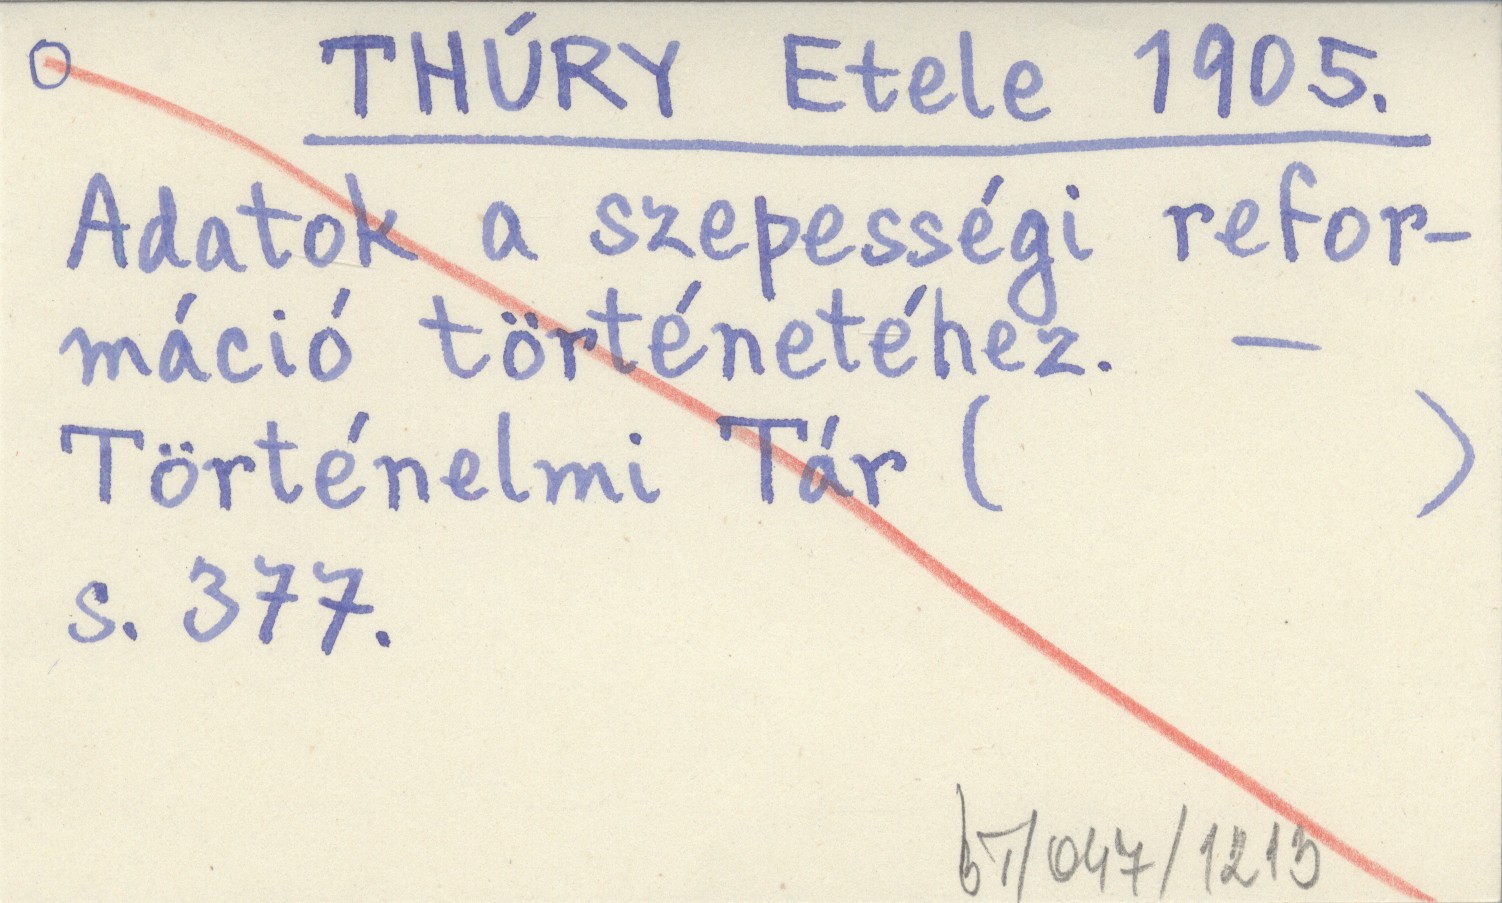 O THÚRY Etele 1905.
Adatok a szepességi refor-
máció történetéhez. —
Történelmi Tár ( )
s. 377.
bT/047/1213